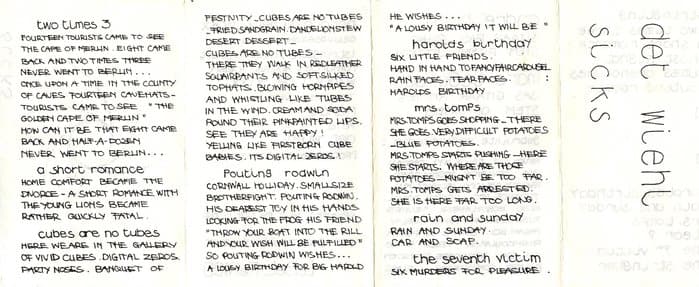 two times 3
FOURTEEN TOURISTS CAME TO SEE
THE CAPE OF MERLIN. EIGHT CAME
BACK AND TWO TIMES THREE
NEVER WENT TO BERLIN...
ONCE UPON A TIME IN THE COUNTY
OF CAVES FOURTEEN CAVEHATS-
TOURISTS CAME TO SEE "THE
GOLDEN CAPE OF MERLIN"
HOW CAN IT BE THAT EIGHT CAME
BACK AND HALF-A-DOZEN
NEVER WENT TO BERLIN...
a short romance
HOME COMFORT BECAME THE
DIVORCE - A SHORT ROMANCE WITH
THE YOUNG LIONS BECAME
RATHER QUICKLY FATAL.
cubes are no tubes
HERE WE ARE IN THE GALLERY
OF VIVID CUBES. DIGITAL ZEROS.
PARTY NOSES. BANQUET OF
FESTIVITY_CUBES ARE NO TUBES
_FRIED SANDGRAIN. DANDELIONSTEW
DESERT DESSERT_
CUBES ARE NO TUBES_
THERE THEY WALK IN REDLEATHER
SQUAIRPANTS AND SOFT-SILKED
TOPHATS. BLOWING HORNPIPES
AND WHISTLING LIKE TUBES
IN THE WIND. CREAM AND SODA
ROUND THEIR PINKPAINTED LIPS.
SEE THEY ARE HAPPY!
YELLING LIKE FIRSTBORN CUBE
BABIES. ITS DIGITAL ZEROS!
Pouting rodwin
CORNWALL HOLLIDAY. SMALLSIZE
BROTHERFIGHT. POUTING RODWIN,
HIS DEAREST TOY IN HIS HANDS
LOOKING FOR THE FROG HIS FRIEND
"THROW YOUR BOAT INTO THE RILL
AND YOUR WISH WILL BE FULFILLED"
SO POUTING RODWIN WISHES...
A LOUSY BIRTHDAY FOR BIG HAROLD
HE WISHES...
"A LOUSY BIRTHDAY IT WILL BE"
harolds birthday
SIX LITTLE FRIENDS.
HAND IN HAND TO FANCYFAIRCAROUSEL
RAIN FACES. TEAR FACES. :
HAROLDS BIRTHDAY
mrs. tomps
MRS TOMPS GOES SHOPPING_THERE
SHE GOES. VERY DIFFICULT POTATOES
_BLUE POTATOES.
MRS. TOMPS STARTS PUSHING_HERE
SHE STARTS. WHERE ARE THOSE
POTATOES_MUSN'T BE TOO FAR.
MRS. TOMPS GETS ARRESTED.
SHE IS HERE FAR TOO LONG.
rain and sunday
RAIN AND SUNDAY.
CAR AND SOAP.
the seventh victim
SIX MURDERS FOR PLEASURE.
det wiehl
sicks